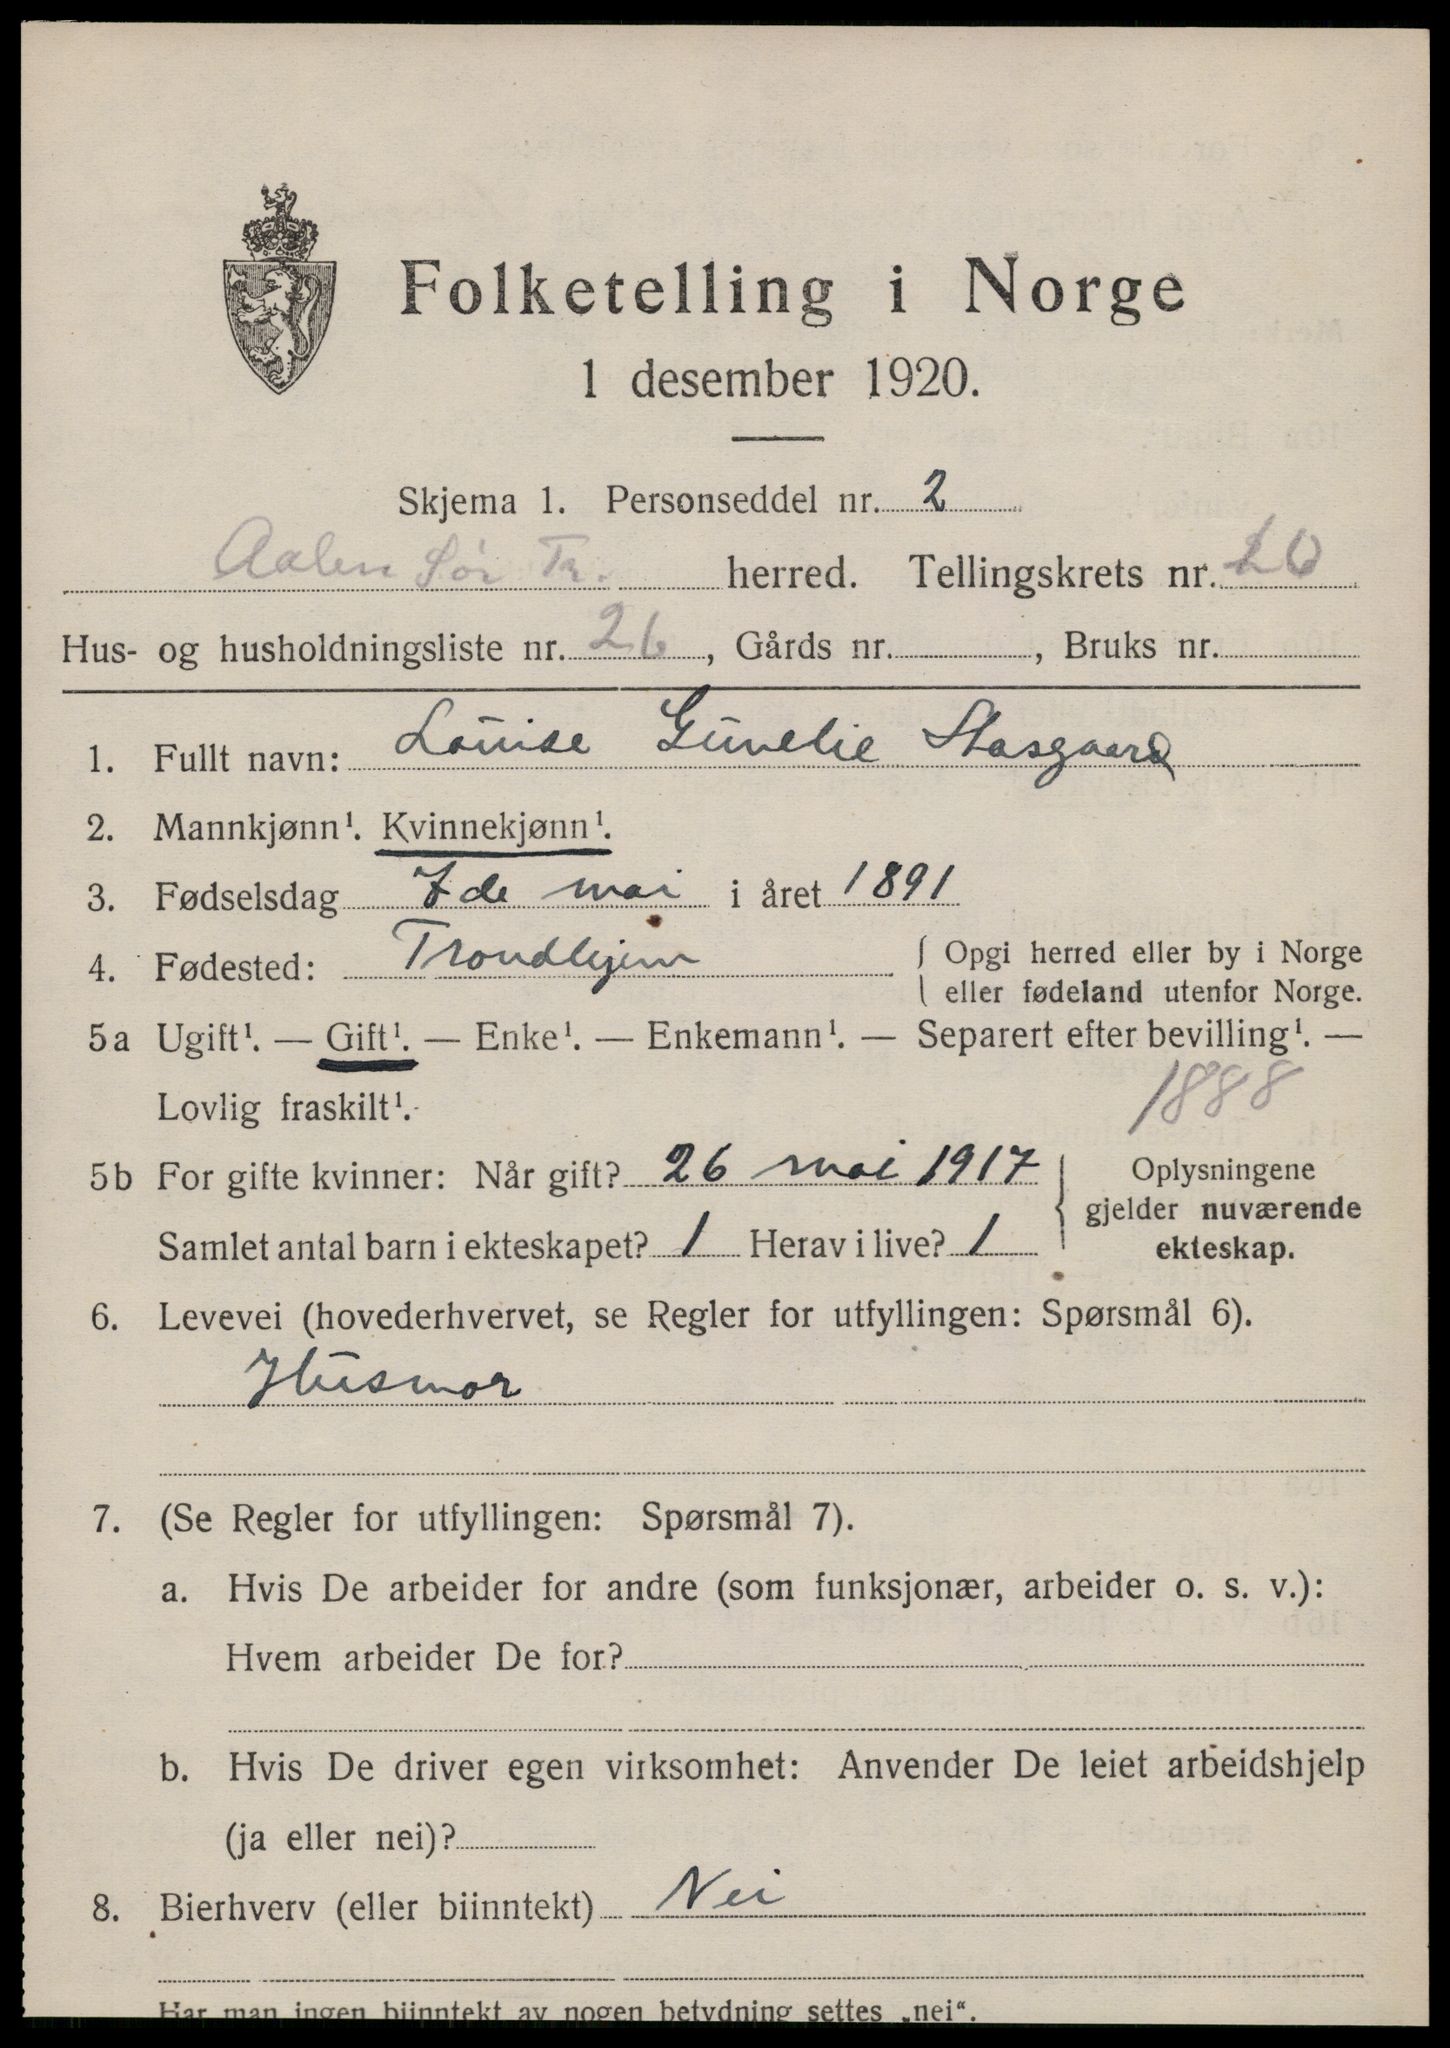 Folketelling i Norge
1 desember 1920.
Skjema 1. Personseddel nr. 2
Aalen Sør Tr. herred. Tellingskrets nr.
Hus- og husholdningsliste nr. 26, Gårds nr. , Bruks nr.
1. Fullt navn: Louise Gunelie Stasgaard
2. Mannkjønn¹. Kvinnekjønn¹.
3. Fødselsdag 7de mai i året 1891
4. Fødested: Trondhjem { Opgi herred eller by i Norge
eller fødeland utenfor Norge.
5a Ugift¹. — Gift¹. — Enke¹. — Enkemann¹. — Separert efter bevilling¹. —
Lovlig fraskilt¹.
1888
5b For gifte kvinner: Når gift? 26 mai 1917 { Oplysningene
gjelder nuværende
Samlet antal barn i ekteskapet? 1 Herav i live? 1 ekteskap.
6. Levevei (hovederhvervet, se Regler for utfyllingen: Spørsmål 6).
Husmor
7. (Se Regler for utfyllingen: Spørsmål 7).
a. Hvis De arbeider for andre (som funksjonær, arbeider o. s. v.):
Hvem arbeider De for?
b. Hvis De driver egen virksomhet: Anvender De leiet arbeidshjelp
(ja eller nei)?
8. Bierhverv (eller biinntekt) Nei
Har man ingen biinntekt av nogen betydning settes „nei“.